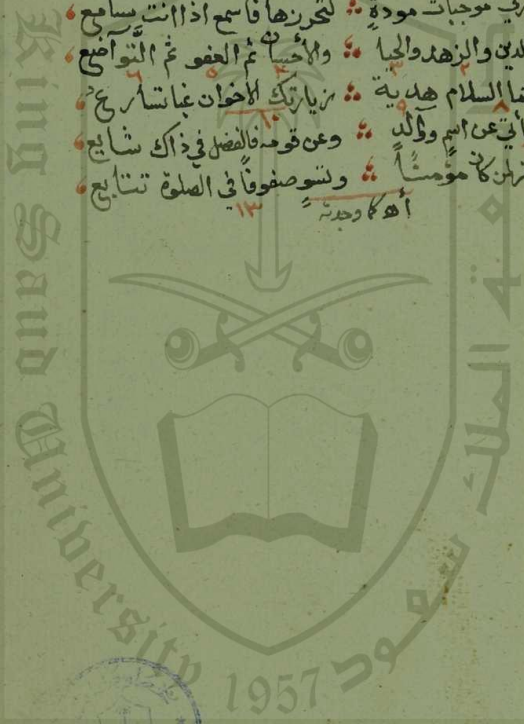 ري موجبات مودةٍ ؞ لتحرزها فاسمع اذا انت سامع
لدين والزهد والحيا ؞ والأحسان ثم العفو ثم التواضع
السلام هدية ؞ زيارتك الاخوان غبا تسارع
عن اسمٍ ووالدٍ ؞ وعن قومه فالفضل في ذاك شايع
كان مؤمناً ؞ وتسو صفوفاً في الصلوة تتابع
اه كما وجدته ١٣
King Saud University
1957
جامعة الملك سعود